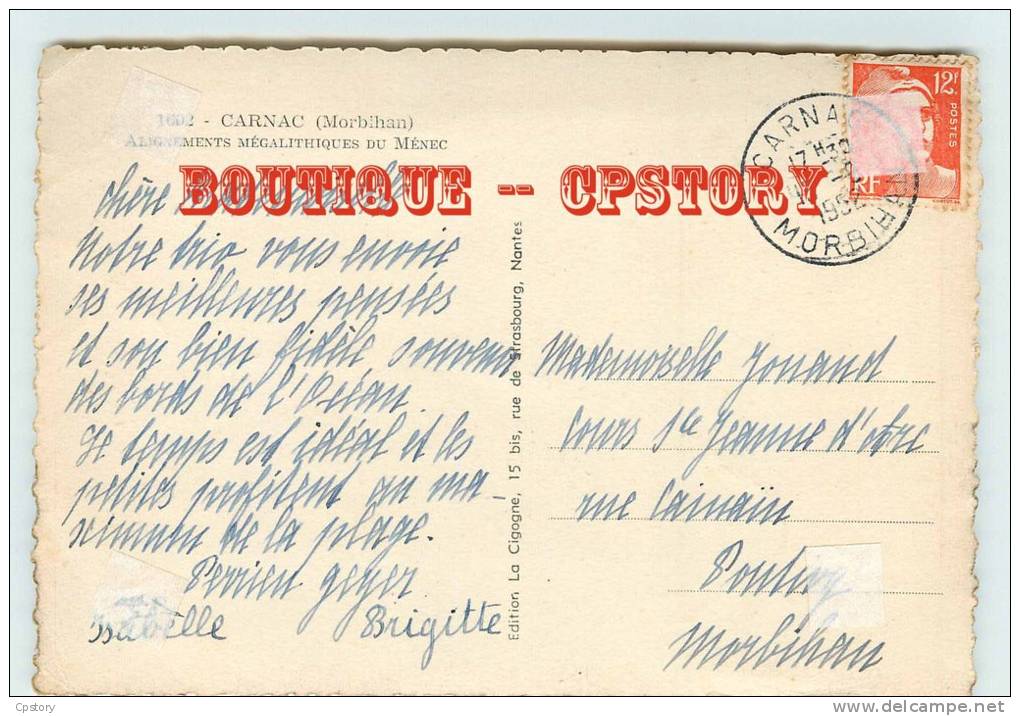 1602 - CARNAC (Morbihan)
ALIGNEMENTS MÉGALITHIQUES DU MÉNEC
BOUTIQUE -- CPSTORY
chère
Notre trio vous envoie
ses meilleures pensées
et son bien fidèle souvenir
des bords de l'Océan.
Le temps est idéal et les
petites profitent au ma-
ximum de la plage.
Perrien Geyer
Isabelle Brigitte
Edition La Cigogne, 15 bis, rue de Strasbourg, Nantes
12F
POSTES
RF
CARNAC
17 H30
195
MORBIHAN
Mademoiselle Jouand
Cours Ste Jeanne d'Arc
rue
Pontivy
Morbihan
Cpstory
http://www.delcampe.net